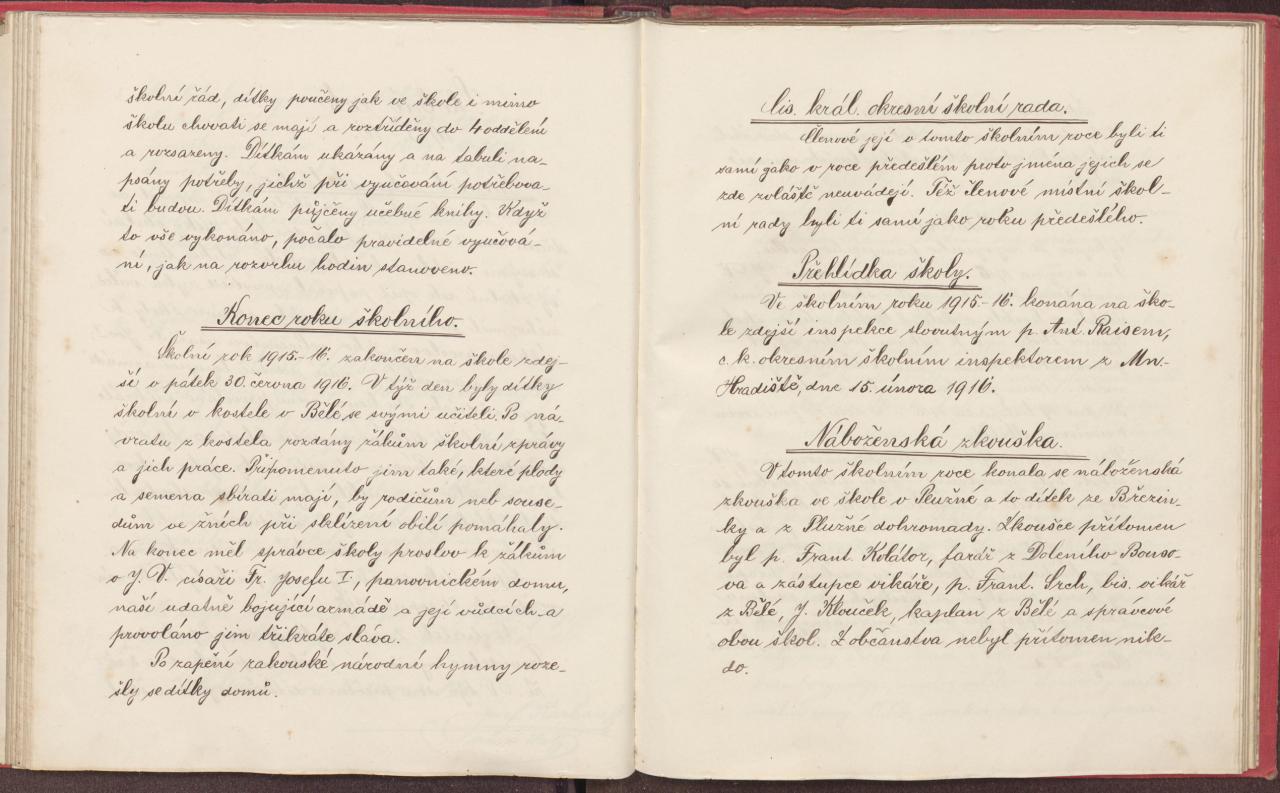 školní řád, dítky poučeny jak ve škole i mimo
školu chovati se mají a roztříděny do 4 oddělení
a rozsazeny. Dítkám ukázány a na tabuli na-
psány potřeby, jichž při vyučování potřebova-
ti budou. Dítkám půjčeny učebné knihy. Když
to vše vykonáno, počalo pravidelné vyučová-
ní, jak na rozvrhu hodin stanoveno.
Konec roku školního.
Školní rok 1915.-16. zakončen na škole zdej-
ší v pátek 30. června 1916. V týž den byly dítky
školní v kostele v Bělé se svými učiteli. Po ná-
vratu z kostela rozdány žákům školní zprávy
a jich práce. Připomenuto jim také, které plody
a semena sbírati mají, by rodičům neb souse-
dům ve žních při sklízení obilí pomáhaly.
Na konec měl správce školy proslov k žákům
o J. V. císaři Fr. Josefu I., panovnickém domu,
naší udatně bojující armádě a její vůdcích a
provoláno jim třikráte sláva.
Po zapění rakouské národní hymny roze-
šly se dítky domů.
Cís. král. okresní školní rada.
Členové její v tomto školním roce byli ti
samí jako v roce předešlém proto jména jejich se
zde zvláště neuvádějí. Též členové místní škol-
ní rady byli ti samí jako roku předešlého.
Přehlídka školy.
Ve školním roku 1915-16. konána na ško-
le zdejší inspekce slovutným p. Ant. Raisem,
c. k. okresním školním inspektorem z Mn.-
Hradiště, dne 15. února 1916.
Náboženská zkouška.
V tomto školním roce konala se náboženská
zkouška ve škole v Plužné a to dítek ze Březin-
ky a z Plužné dohromady. Zkoušce přítomen
byl p. Frant. Kolátor, farář z Doleního Bouso-
va a zástupce vikáře, p. Frant. Srch, bis. vikář
z Bělé, J. Klouček, kaplan z Bělé a správcové
obou škol. Z občanstva nebyl přítomen nik-
do.